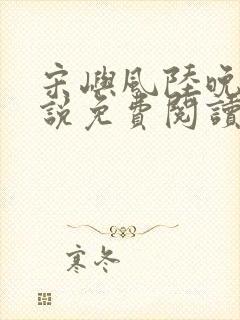 宋嶼風陸晚
說免費閱讀
寒冬